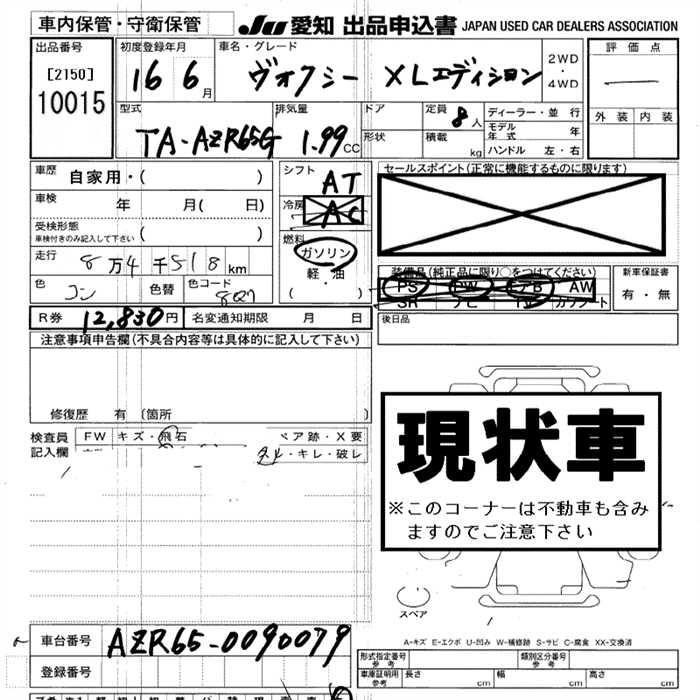 車内保管・守衛保管
JU 愛知 出品申込書 JAPAN USED CAR DEALERS ASSOCIATION
出品番号
[2150]
10015
初度登録年月
16 6月
車名・グレード
ヴォクシー XLエディション
2WD
・
4WD
評価点
外装 内装
型式
TA-AZR65G
排気量
1.99 CC
ドア
形状
定員 8人
積載 kg
ディーラー・並行
モデル年式 年
ハンドル 左・右
車歴 自家用・( )
車検 年 月( 日)
受検形態
車検付きのみ記入して下さい ( )
走行 8万4千518km
色 コン 色替 色コード 8Q7
シフト AT
冷房 AC
燃料
ガソリン
軽・油
・
( )
セールスポイント(正常に機能するものに限ります)
装備品(純正品に限り○をつけてください)
PS PW エアB AW
SR ナビ TV カワシート
新車保証書
有・無
R券 12,830円 名変通知期限 月 日
後日品
注意事項申告欄(不具合内容等は具体的に記入して下さい)
修復歴 有 [箇所 ]
検査員
記入欄
FW キズ・飛石
ペア跡・X要
・キレ・破レ
現状車
※このコーナーは不動車も含み
ますのでご注意下さい
スペア
A-キズ E-エクボ U-凹み W-補修跡 S-サビ C-腐食 XX-交換済
車台番号 AZR65-0090079
登録番号
形式指定番号
参考
類別区分番号
参考
車庫証明用
参考
長さ cm 幅 cm 高さ cm